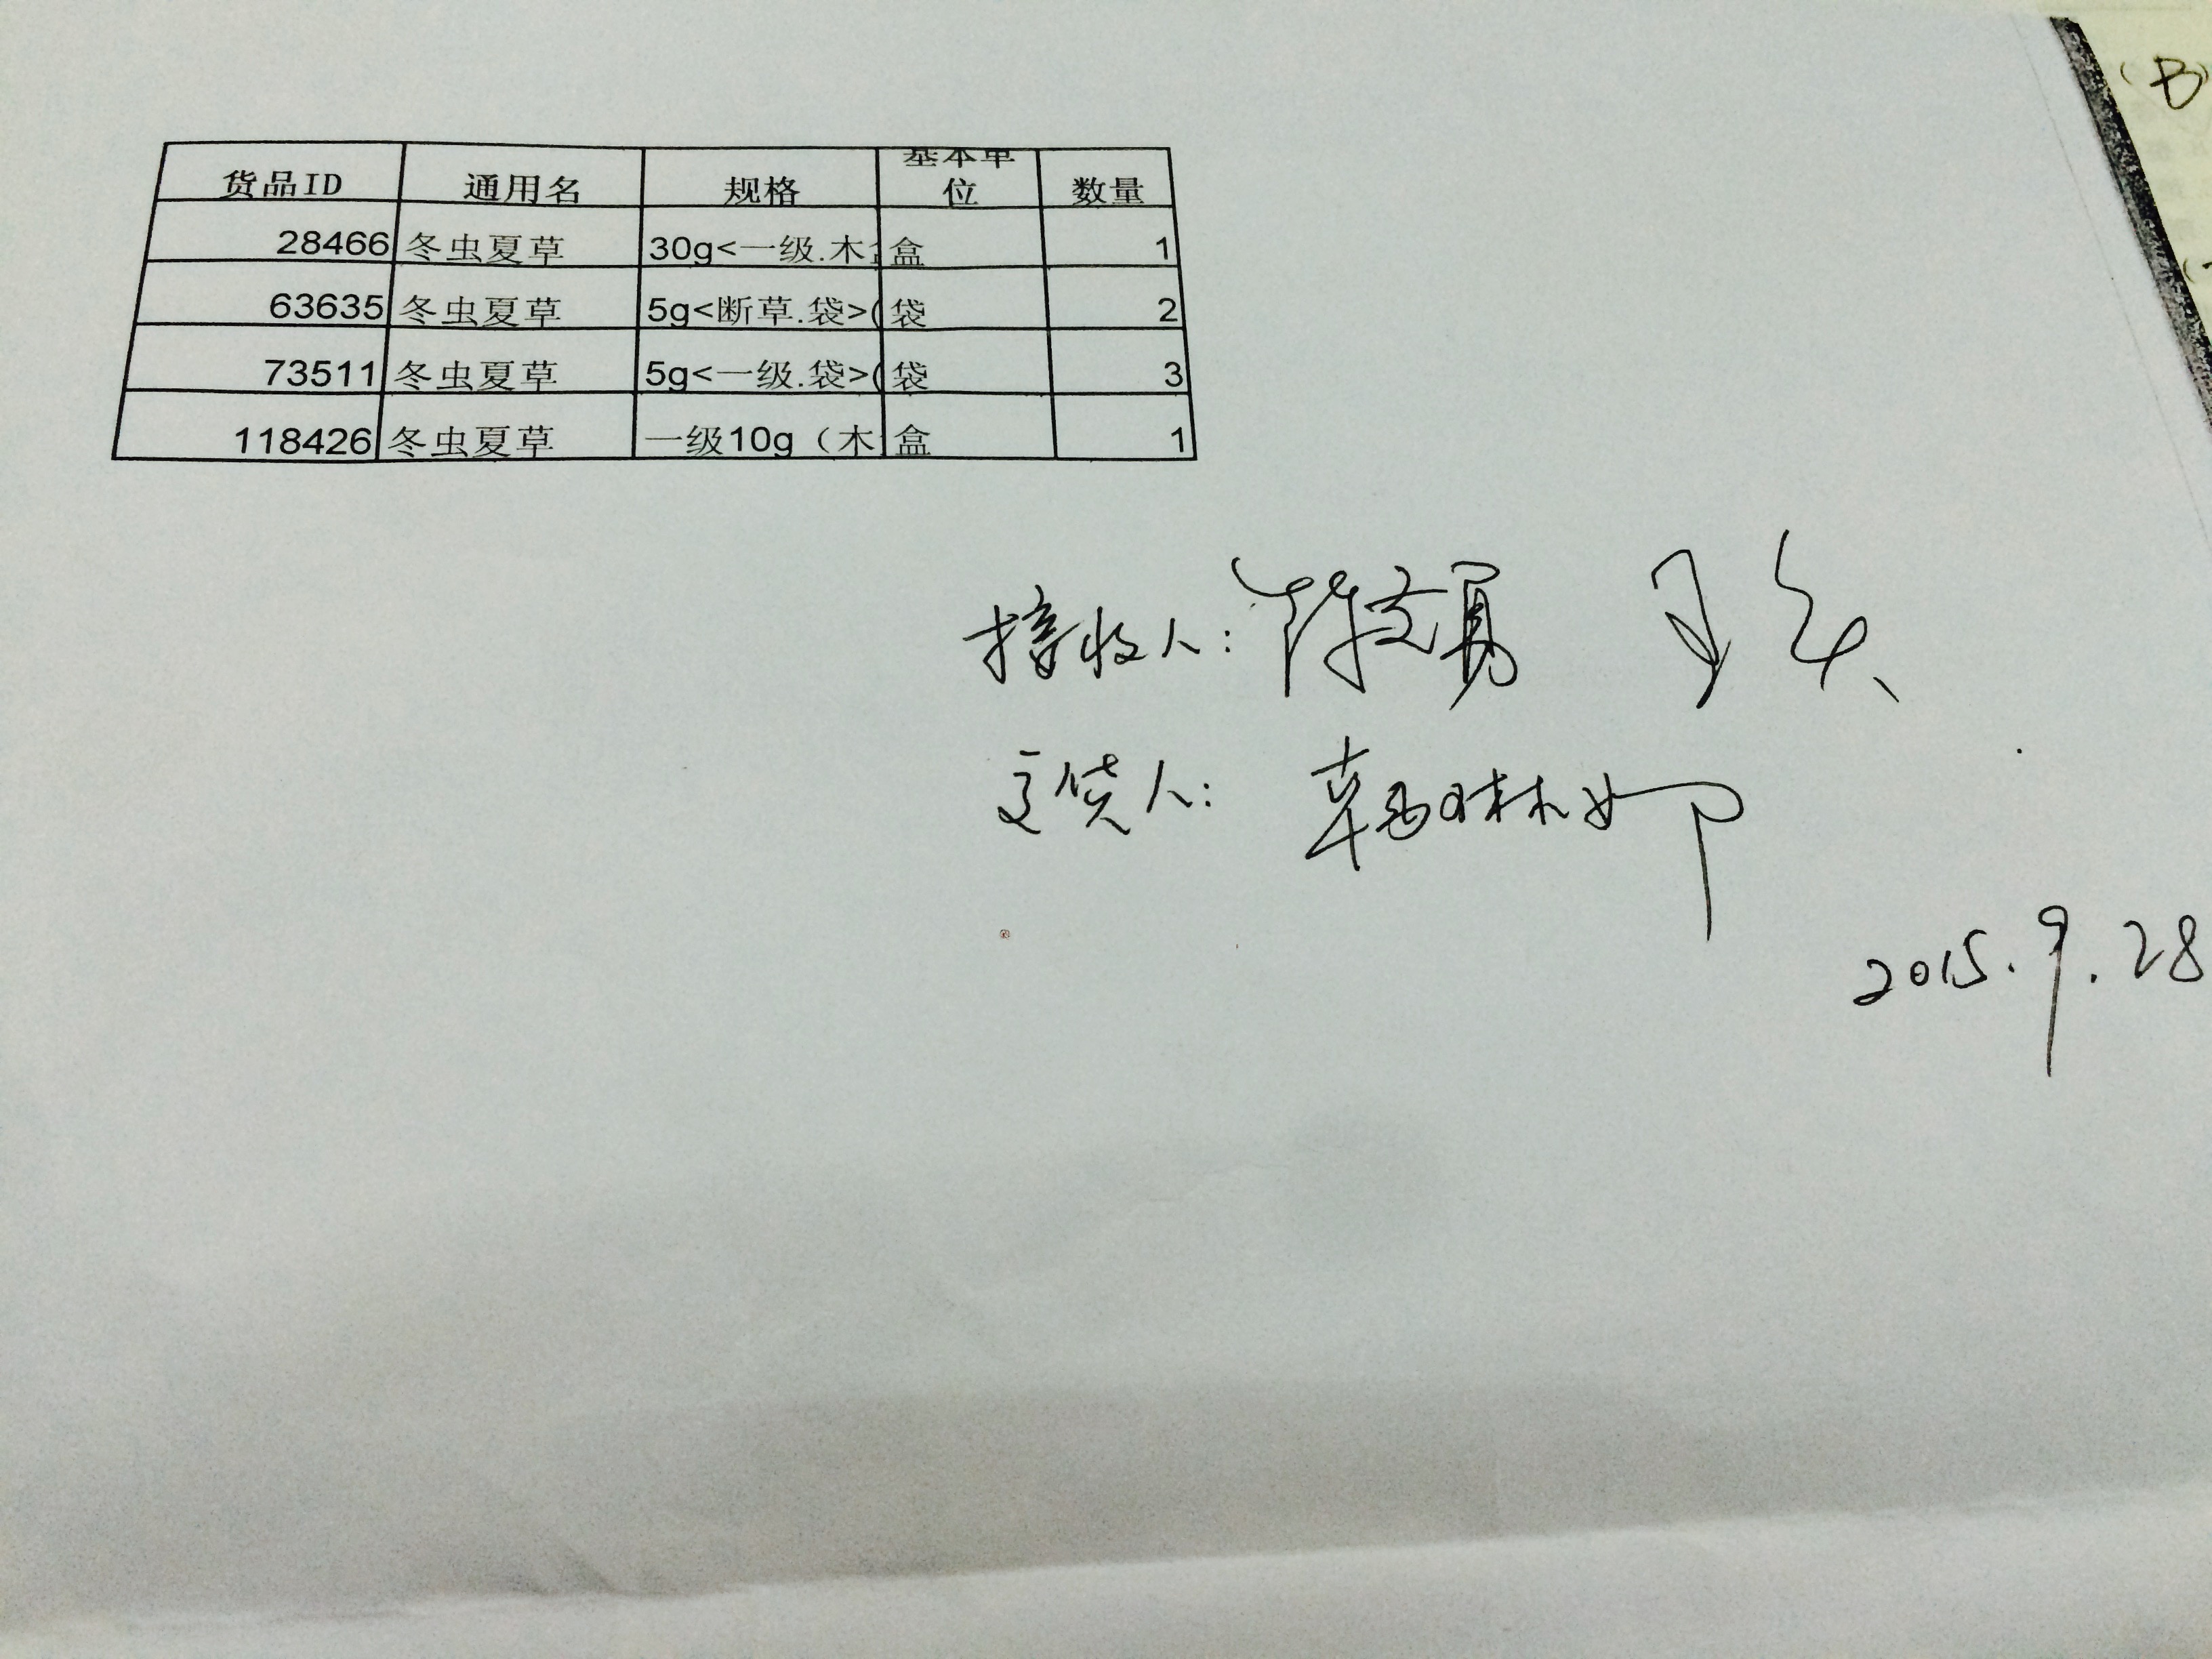 货品ID 通用名 规格 基本单位 数量
28466 冬虫夏草 30g<一级.木 盒 1
63635 冬虫夏草 5g<断草.袋>( 袋 2
73511 冬虫夏草 5g<一级.袋>( 袋 3
118426 冬虫夏草 一级10g（木 盒 1
接收人: 陈文勇
交货人: 韩琳娜
2015.9.28